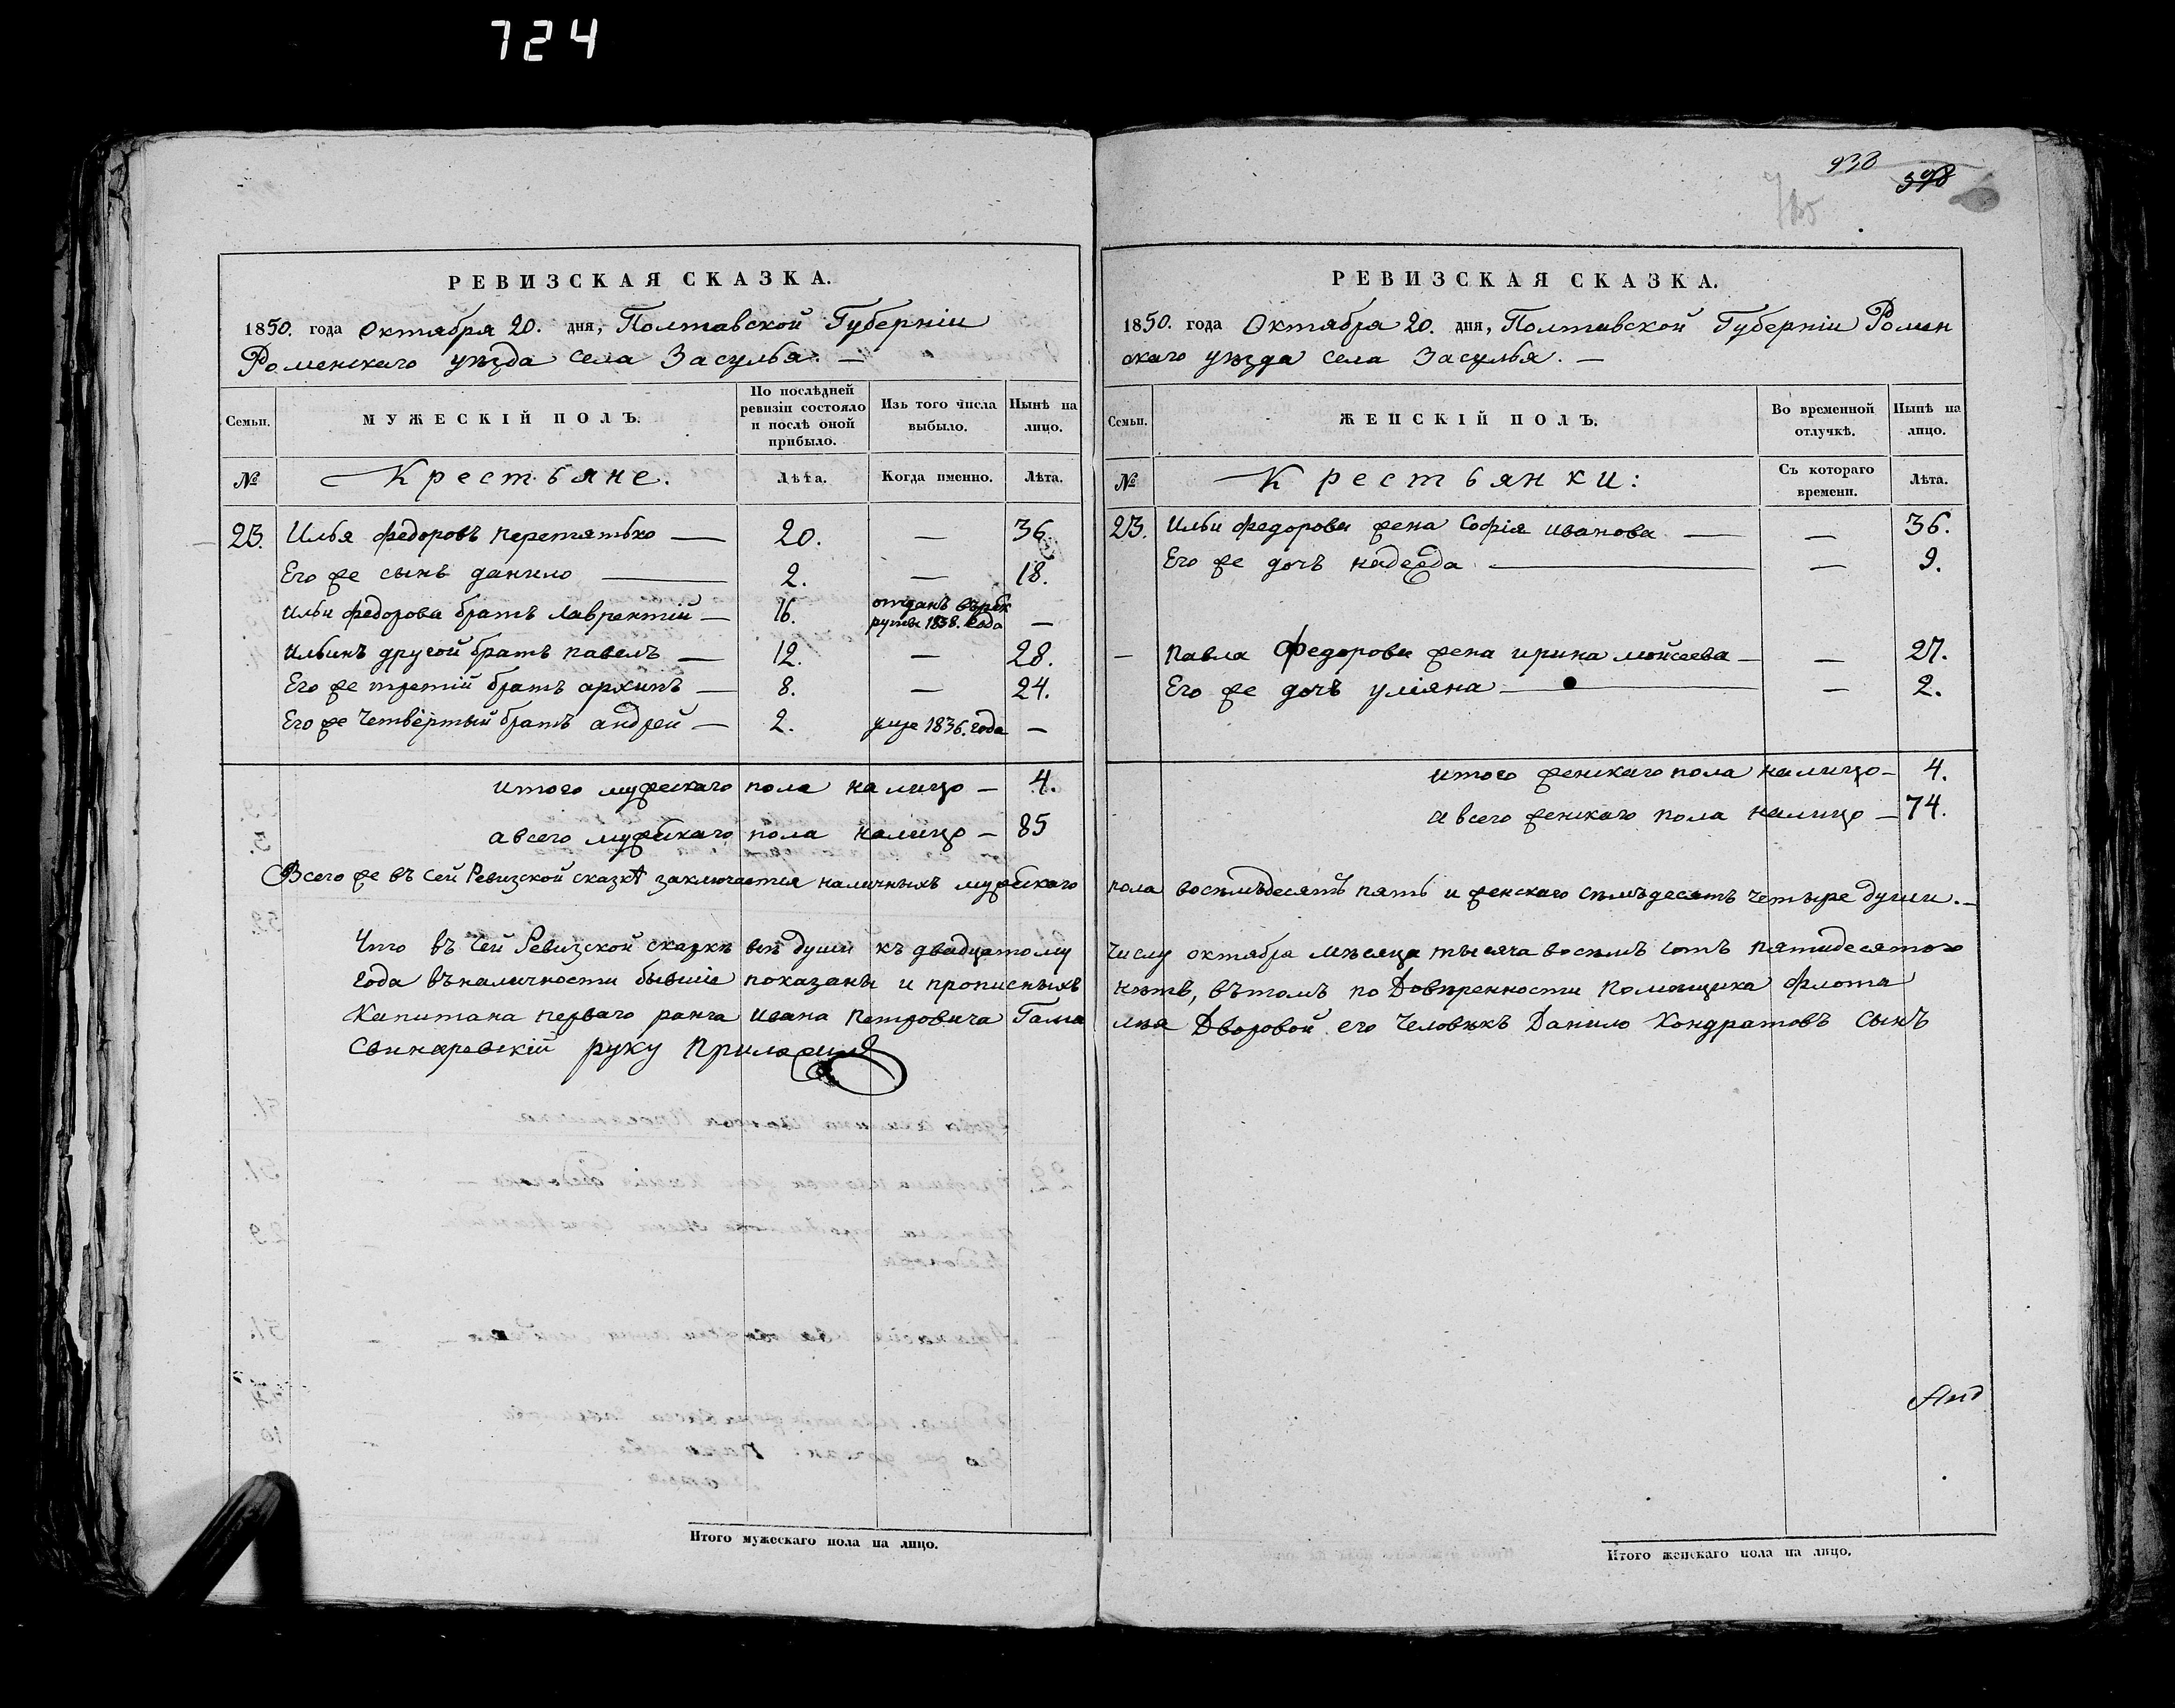 724
930
398
РЕВИЗСКАЯ СКАЗКА.
1850. года Октября 20. дня, Полтавской Губерніи
Роменскаго уѣзда села Засулья. —
Семьи.
МУЖЕСКІЙ ПОЛЪ.
По послѣдней ревизіи состояло и послѣ оной прибыло.
Изъ того числа выбыло.
Нынѣ на лицо.
№
Крестьяне.
Лѣта.
Когда именно.
Лѣта.
23. Илья Федоровъ Перетятько — 20. — 36.
Его же сынъ данило — 2. — 18.
Ильи Федорова братъ Лаврентій — 16. отданъ въ рек
руты 1838. года —
Ильинъ другой братъ павелъ — 12. — 28.
Его же третій братъ архипъ — 8. — 24.
Его же четвёртый братъ андрей — 2. умре 1836. года —
итого мужескаго пола налицо — 4.
а всего мужескаго пола налицо — 85
РЕВИЗСКАЯ СКАЗКА.
1850. года Октября 20. дня, Полтавской Губерніи Ромен
скаго уѣзда села Засулья. —
Семьи.
ЖЕНСКІЙ ПОЛЪ.
Во временной отлучкѣ.
Нынѣ на лицо.
№
Крестьянки:
Съ котораго времени.
Лѣта.
23. Ильи Федорова жена Софія иванова — — 36.
Его же дочь надежда — — 9.
— Павла Федорова жена ирина мойсеева — — 27.
Его же дочь уліяна — — 2.
итого женскаго пола налицо — 4.
а всего женскаго пола налицо — 74.
Всего же въ сей Ревизской сказкѣ заключается наличныхъ мужескаго пола восѣмъдесятъ пять и женскаго сѣмъдесятъ четыре души. —
Что въ сей Ревизской сказкѣ всѣ души къ двадцатому числу октября мѣсяца тысяча восѣмъ сотъ пятидесятого
года въ наличности бывшіе показаны и прописныхъ нѣтъ, въ томъ по Довѣренности помѣщика Флота
Капитана перваго ранга ивана Петровича Гама лѣя Дворовой его Человѣкъ Данило Кондратовъ сынъ
Свинаревскій руку приложилъ
Итого мужескаго пола на лицо.
Итого женскаго пола на лицо.